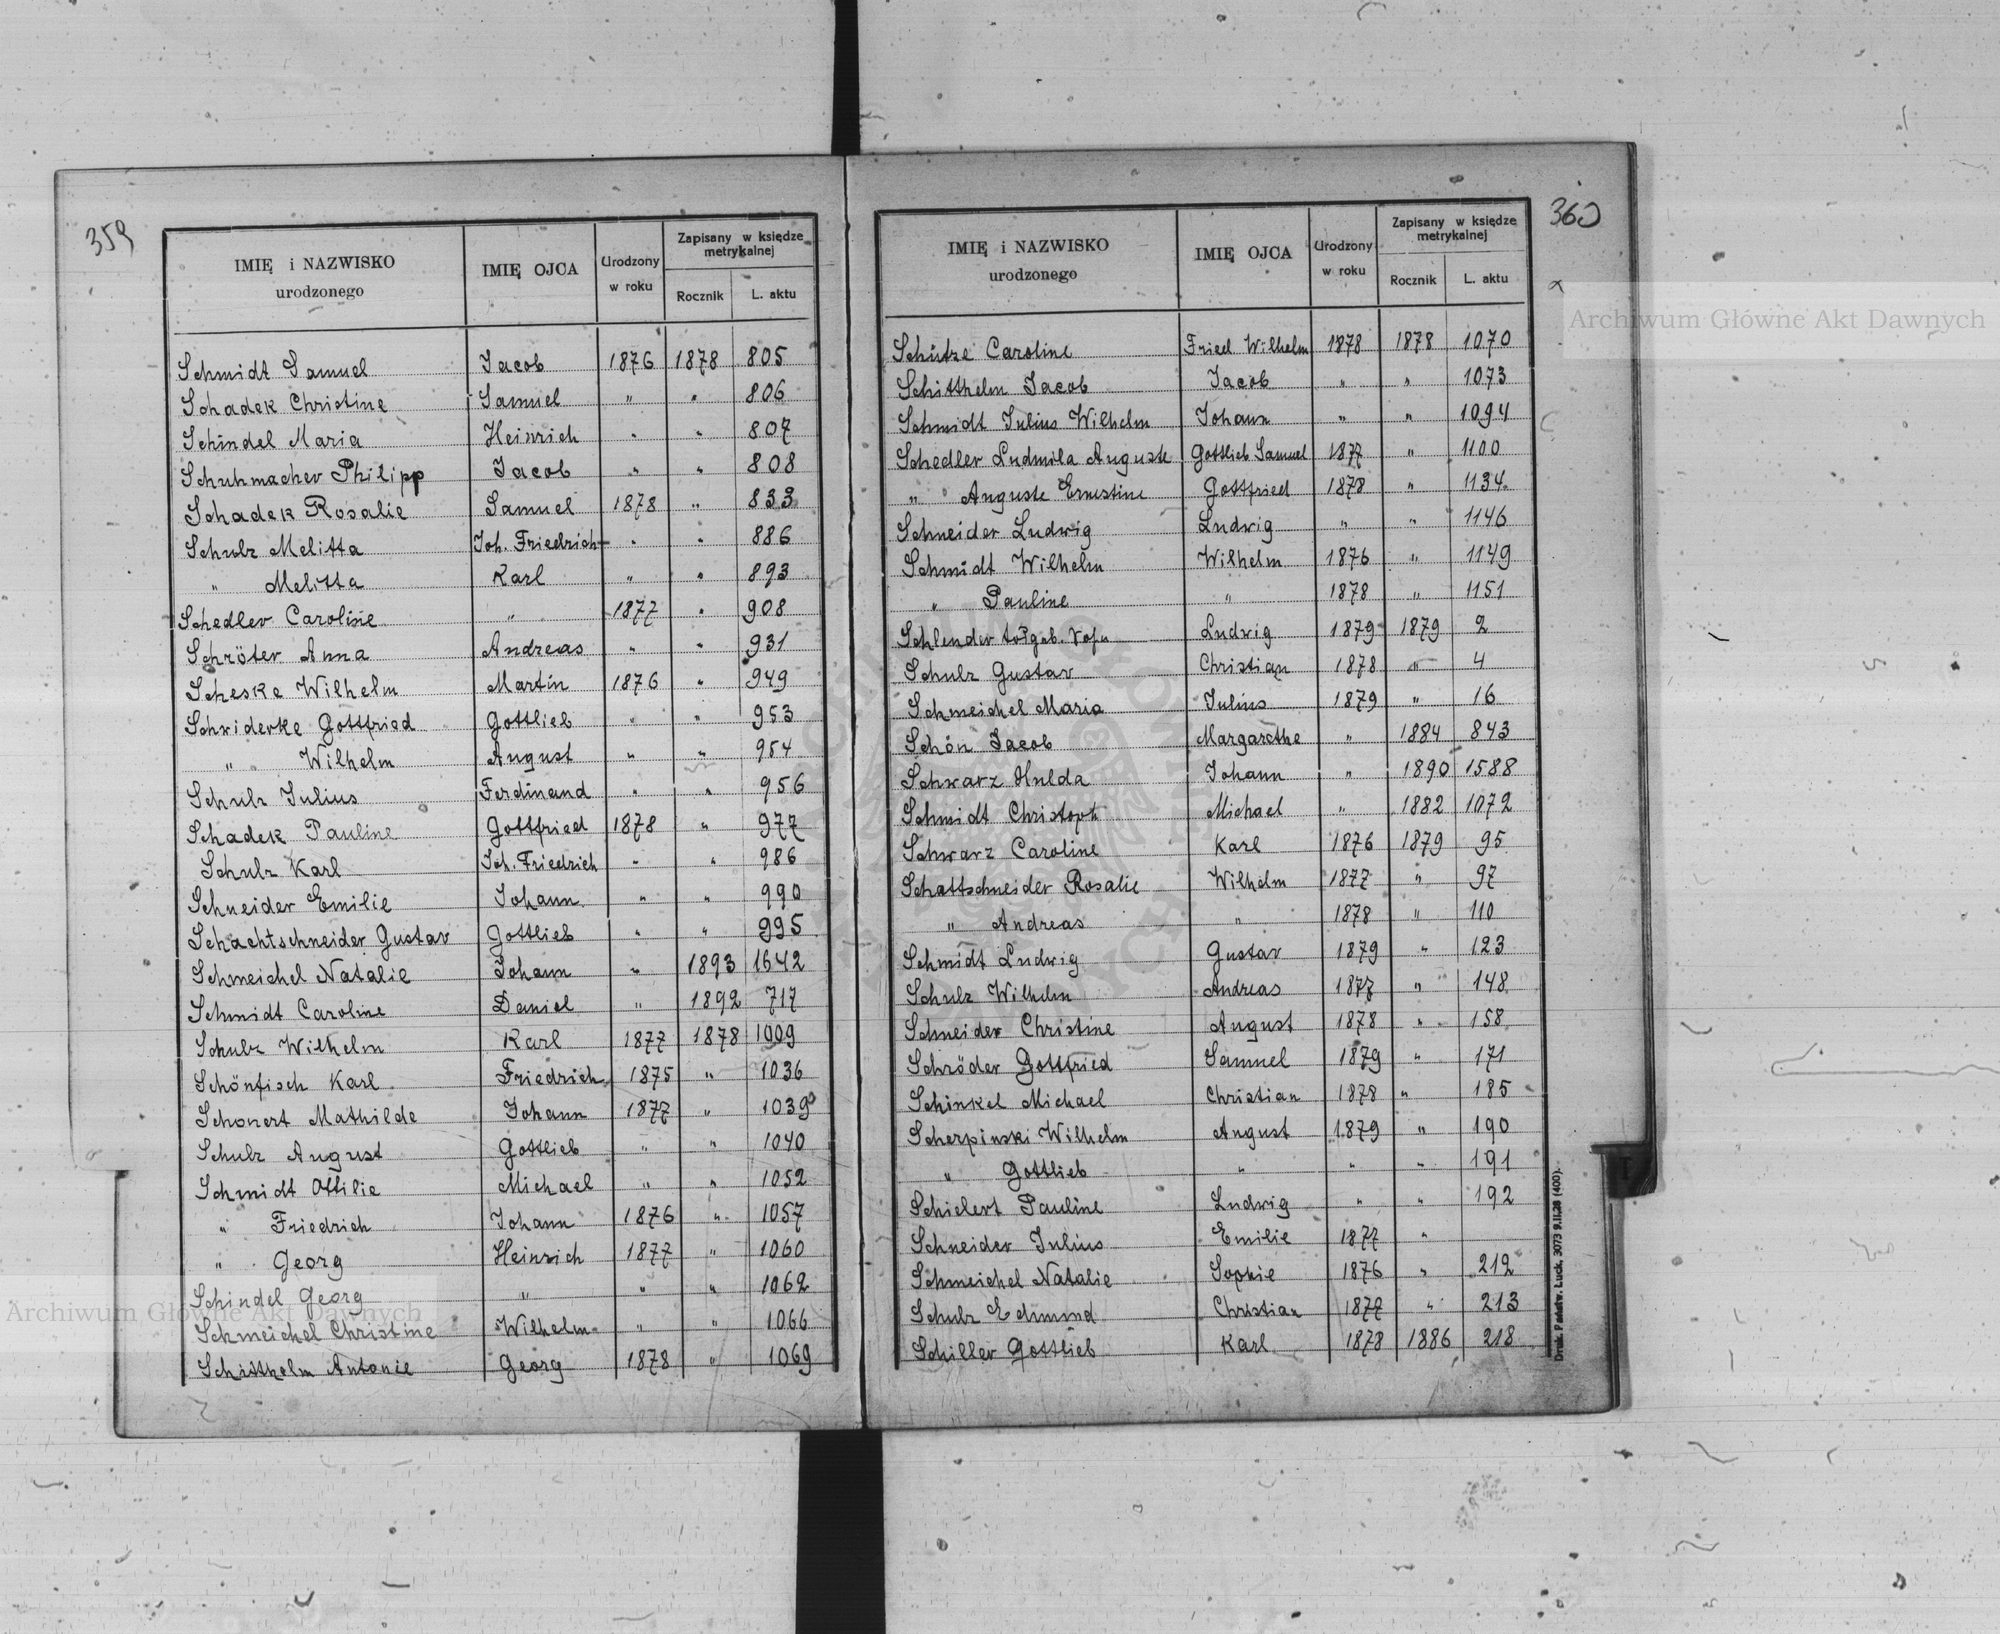 359
IMIĘ i NAZWISKO urodzonego | IMIĘ OJCA | Urodzony w roku | Zapisany w księdze metrykalnej
Rocznik | L. aktu
Schmidt Samuel | Jacob | 1876 | 1878 | 805
Schadek Christine | Samuel | " | " | 806
Schindel Maria | Heinrich | " | " | 807
Schuhmacher Philipp | Jacob | " | " | 808
Schadek Rosalie | Samuel | 1878 | " | 833
Schulz Melitta | Joh. Friedrich | " | " | 886
" Melitta | Karl | " | " | 893
Schedler Caroline | " | 1877 | " | 908
Schröter Anna | Andreas | " | " | 931
Scheske Wilhelm | Martin | 1876 | " | 949
Schwiderke Gottfried | Gottlieb | " | " | 953
" Wilhelm | August | " | " | 954
Schulz Julius | Ferdinand | " | " | 956
Schadek Pauline | Gottfried | 1878 | " | 977
Schulz Karl | Joh. Friedrich | " | " | 986
Schneider Emilie | Johann | " | " | 990
Schachtschneider Gustav | Gottlieb | " | " | 995
Schmeichel Natalie | Johann | " | 1893 | 1642
Schmidt Caroline | Daniel | " | 1892 | 717
Schulz Wilhelm | Karl | 1877 | 1878 | 1009
Schönfisch Karl | Friedrich | 1875 | " | 1036
Schonert Mathilde | Johann | 1877 | " | 1039
Schulz August | Gottlieb | " | " | 1040
Schmidt Ottilie | Michael | " | " | 1052
" Friedrich | Johann | 1876 | " | 1057
" Georg | Heinrich | 1877 | " | 1060
Schindel Georg | " | " | " | 1062
Schmeichel Christine | Wilhelm | " | " | 1066
Schitthelm Antonie | Georg | 1878 | " | 1069
360
IMIĘ i NAZWISKO urodzonego | IMIĘ OJCA | Urodzony w roku | Zapisany w księdze metrykalnej
Rocznik | L. aktu
Schütze Caroline | Fried Wilhelm | 1878 | 1878 | 1070
Schitthelm Jacob | Jacob | " | " | 1073
Schmidt Julius Wilhelm | Johann | " | " | 1094
Schedler Ludmila Auguste | Gottlieb Samuel | 1877 | " | 1100
" Auguste Ernestine | Gottfried | 1878 | " | 1134
Schneider Ludwig | Ludwig | " | " | 1146
Schmidt Wilhelm | Wilhelm | 1876 | " | 1149
" Pauline | " | 1878 | " | 1151
Schlender | Ludwig | 1879 | 1879 | 2
Schulz Gustav | Christian | 1878 | " | 4
Schmeichel Maria | Julius | 1879 | " | 16
Schön Jacob | Margarethe | " | 1884 | 843
Schwarz Hulda | Johann | " | 1890 | 1588
Schmidt Christoph | Michael | " | 1882 | 1072
Schwarz Caroline | Karl | 1876 | 1879 | 95
Schattschneider Rosalie | Wilhelm | 1877 | " | 97
" Andreas | " | 1878 | " | 110
Schmidt Ludwig | Gustav | 1879 | " | 123
Schulz Wilhelm | Andreas | 1877 | " | 148
Schneider Christine | August | 1878 | " | 158
Schröder Gottfried | Samuel | 1879 | " | 171
Schinkel Michael | Christian | 1878 | " | 185
Scherpinski Wilhelm | August | 1879 | " | 190
" Gottlieb | " | " | " | 191
Schielert Pauline | Ludwig | " | " | 192
Schneider Julius | Emilie | 1877 | "
Schmeichel Natalie | Sophie | 1876 | " | 212
Schulz Edmund | Christian | 1877 | " | 213
Schiller Gottlieb | Karl | 1878 | 1886 | 218
Druk. Państw. Łuck. 3073 9.II.28 (400).
Archiwum Główne Akt Dawnych
Archiwum Główne Akt Dawnych